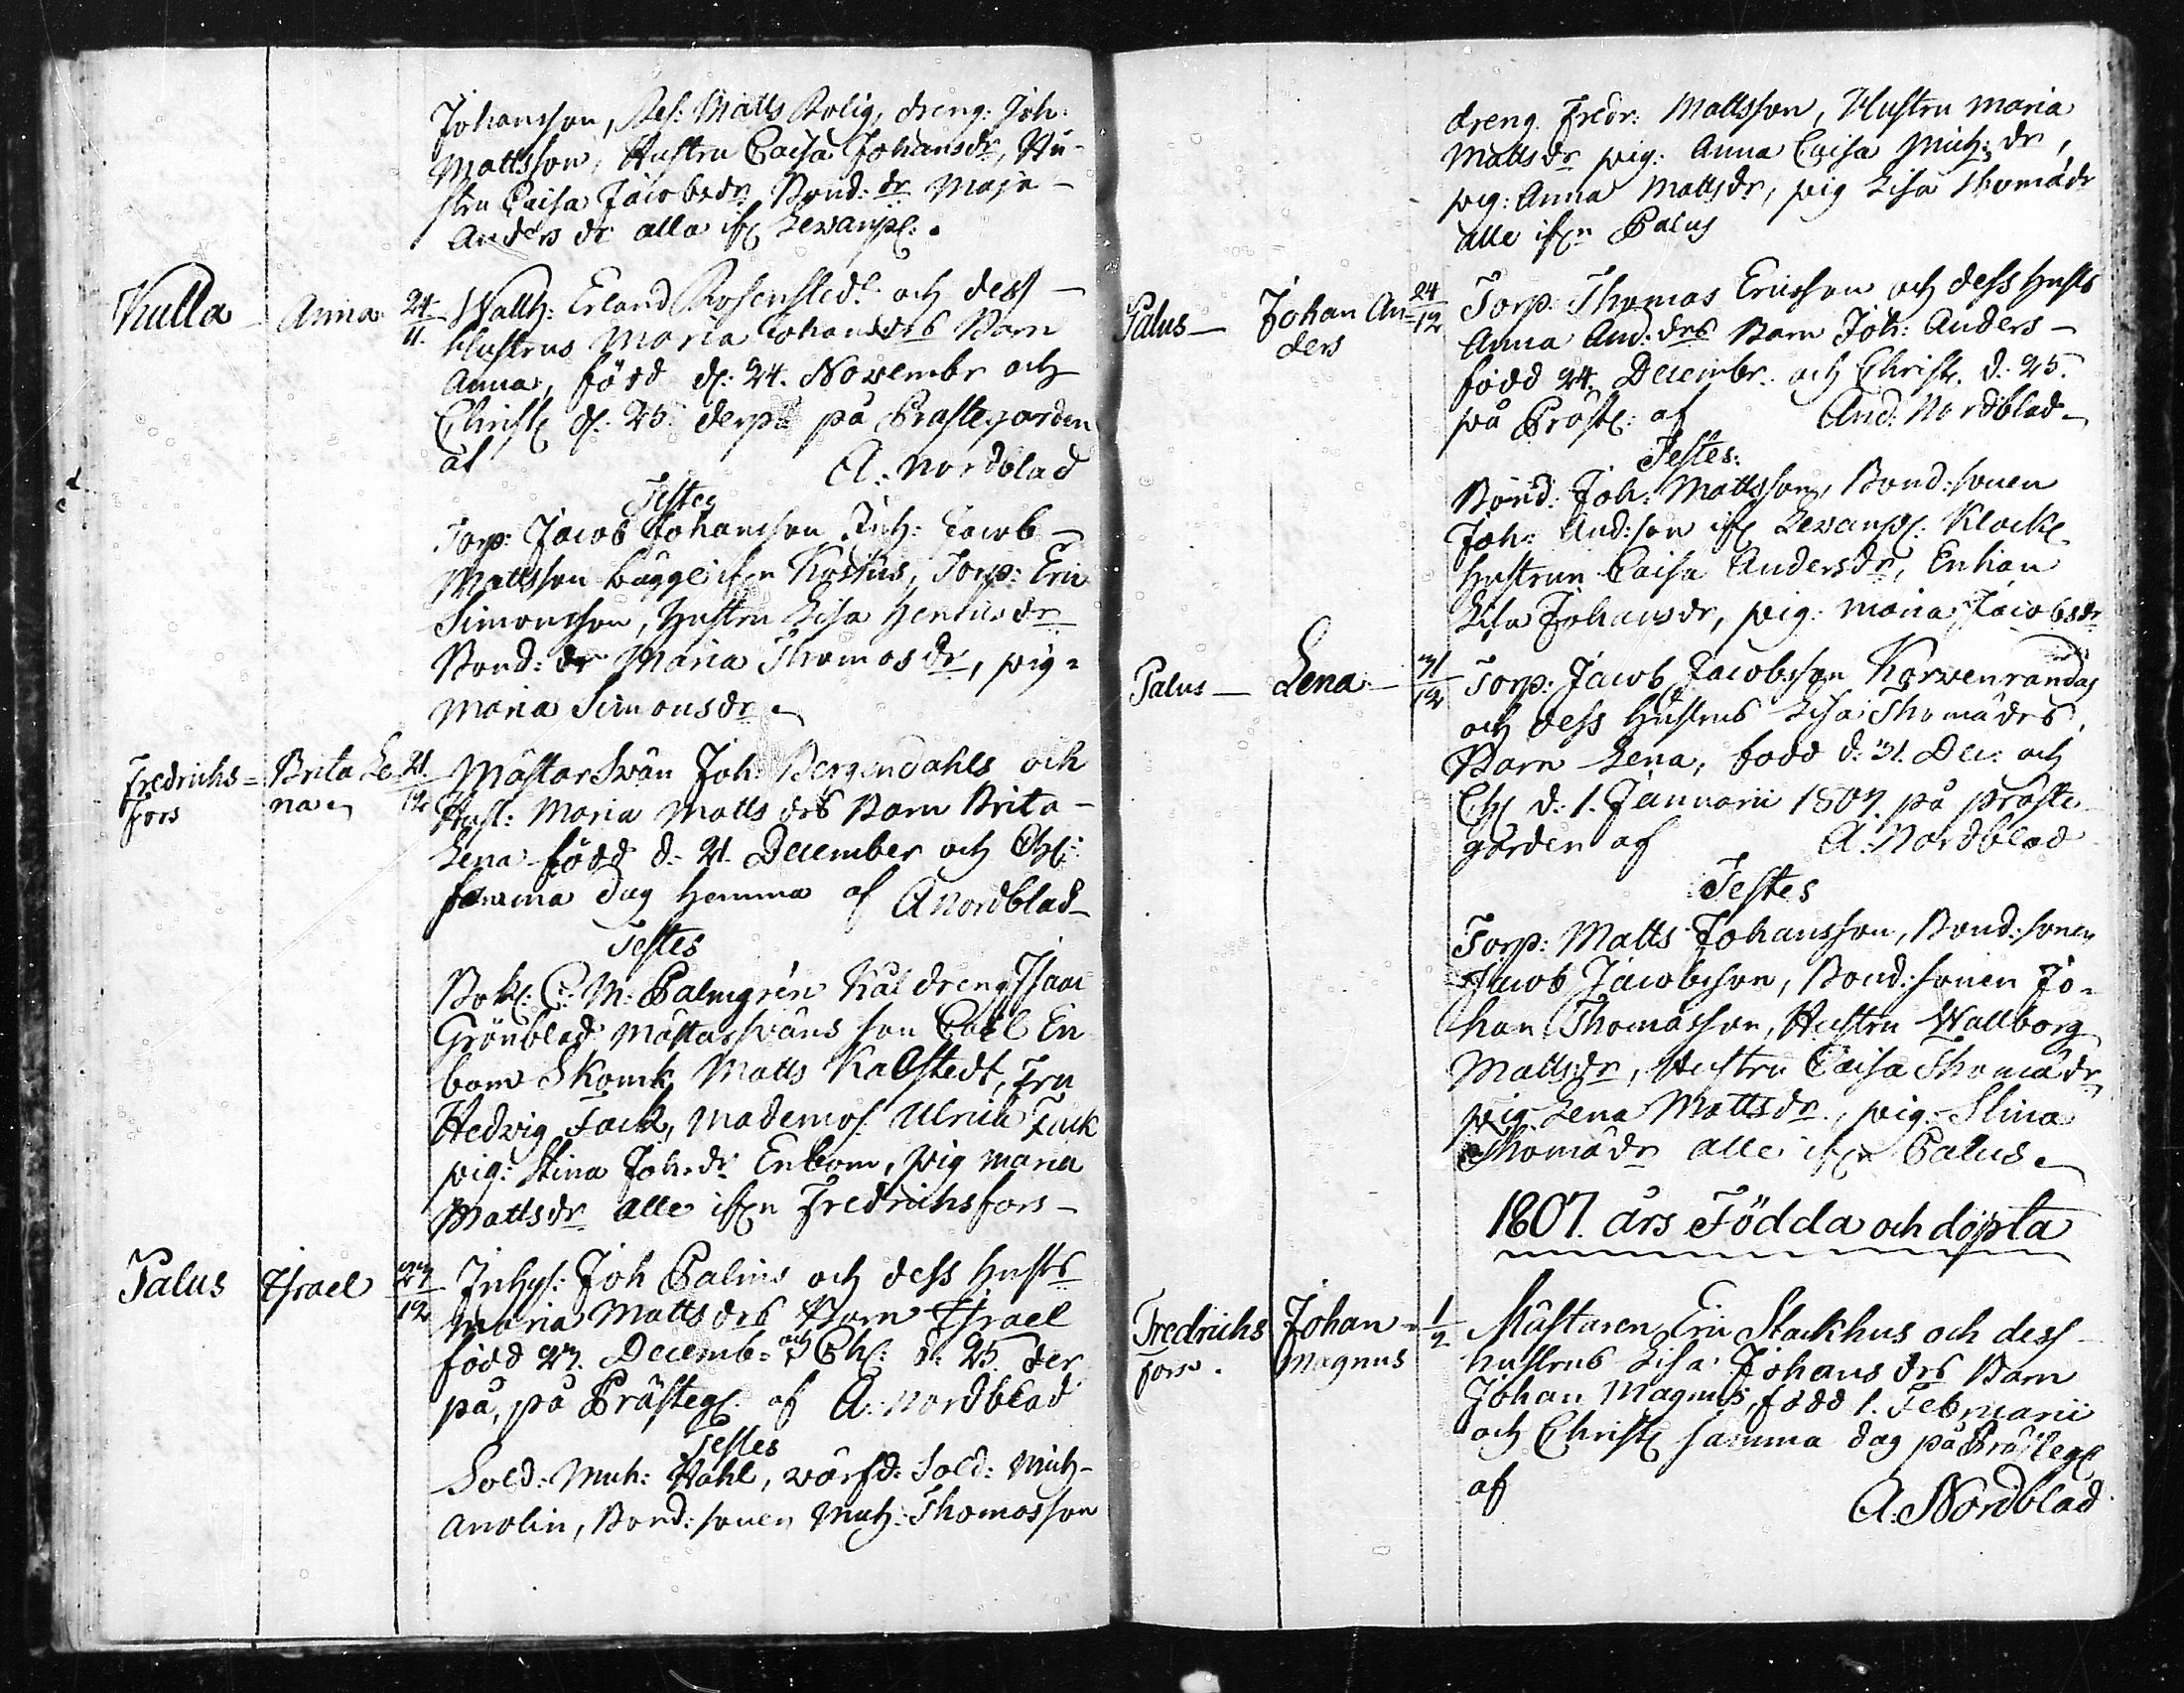 Johansson, Res: Matts Rolig, dreng: Joh:
Mattsson, Hustru Caisa Johansdr, Hu-
stru Caisa Jacobsdr Bond: dr Maja
Anders dr alla ifr Lewanp:.
Kulla Anna 24/11 Wallh: Erland Rosenstedt och dess
Hustrus Maria Johansdrs Barn
Anna, född d: 24. Novembr och
Christ d: 25 derpå på Prästegorden
af A: Nordblad
Testes
Torp: Jacob Johansson Inh: Jacob
Mattsson bägge ifrn Koskis, Torp: Eric
Simonsson, Hustru Lisa Henricsdr
Bond: dr Maria Thomasdr, pig:
Maria Simonsdr
Fredrichs=fors Brita Lena 21/12 Mästar Swän Joh: Bergendahls och
Hust: Maria Matts drs Barn Brita
Lena född d. 21. December och Chr:
samma dag hemma af A Nordblad
Testes
Bok: C: M: Palmgrén Kål dreng Isaac
Grönblad Mästarswäns son Carl En
bom Skomk Matts Kallstedt, Fru
Hedvig Fack, Mademois. Ulrica Fack
pig: Stina Joh.dr Enbom, pig Maria
Mattsdr alle ifrn Fredrichsfors
Palus Israel 23/12 Inhys: Joh Palins och dess Hustrs
Maria Mattsdrs Barn Israel
född 23. Decemb= och Chr: d. 25 der
på, på Prästeg. af A: Nordblad
Testes
Sold: Mich: Wahl, värfd: Sold: Mich
Anolin, Bond: sonen Mich: Thomasson
dreng Fredr: Mattsson, Hustru Maria
Mattsdr pig: Anna Caisa Mich: dr,
pig: Anna Mattsdr, pig Lisa Thomädr
alle ifrn Palus
Palus Johan An=ders 24/12 Torp: Thomas Ericsson och dess Hustr
Anna And: drs Barn Joh: Anders
född 24. Decembr. och Christ. d. 25.
på Präst: af And: Nordblad
Testes:
Bond: Joh: Mattsson, Bond: sonen
Joh: And: son ifr Lewanp: Klock
Hustrun Caisa Andersdr, Enkan
Lisa Johansdr, pig: Maria Jacobsdr
Palus Lena 31/12 Torp: Jacob Jacobsson Korwenrandas
och dess Hustrus Lisa Thomädrs
Barn Lena, född d: 31. Dec: och
Chr d: 1. Januarii 1807 på präste
gården af A: Nordblad
Testes
Torp: Matts Johansson, Bond: sonen
Jacob Jacobsson, Bond: sonen Jo-
han Thomasson, Hustru Wallborg
Mattsdr, Hustru Caisa Thomädr
pig Lena Mattsdr, pig: Stina
Thomädr alle ifrn Palus
1807. års Födda och döpta
Fredrichs fors. Johan Magnus 1/2 Mästaren Eric Stackhus och dess
hustrus Lisa Johans drs Barn
Johan Magnus, född 1. Februarii
och Christ samma dag på Prästeg
af A: Nordblad